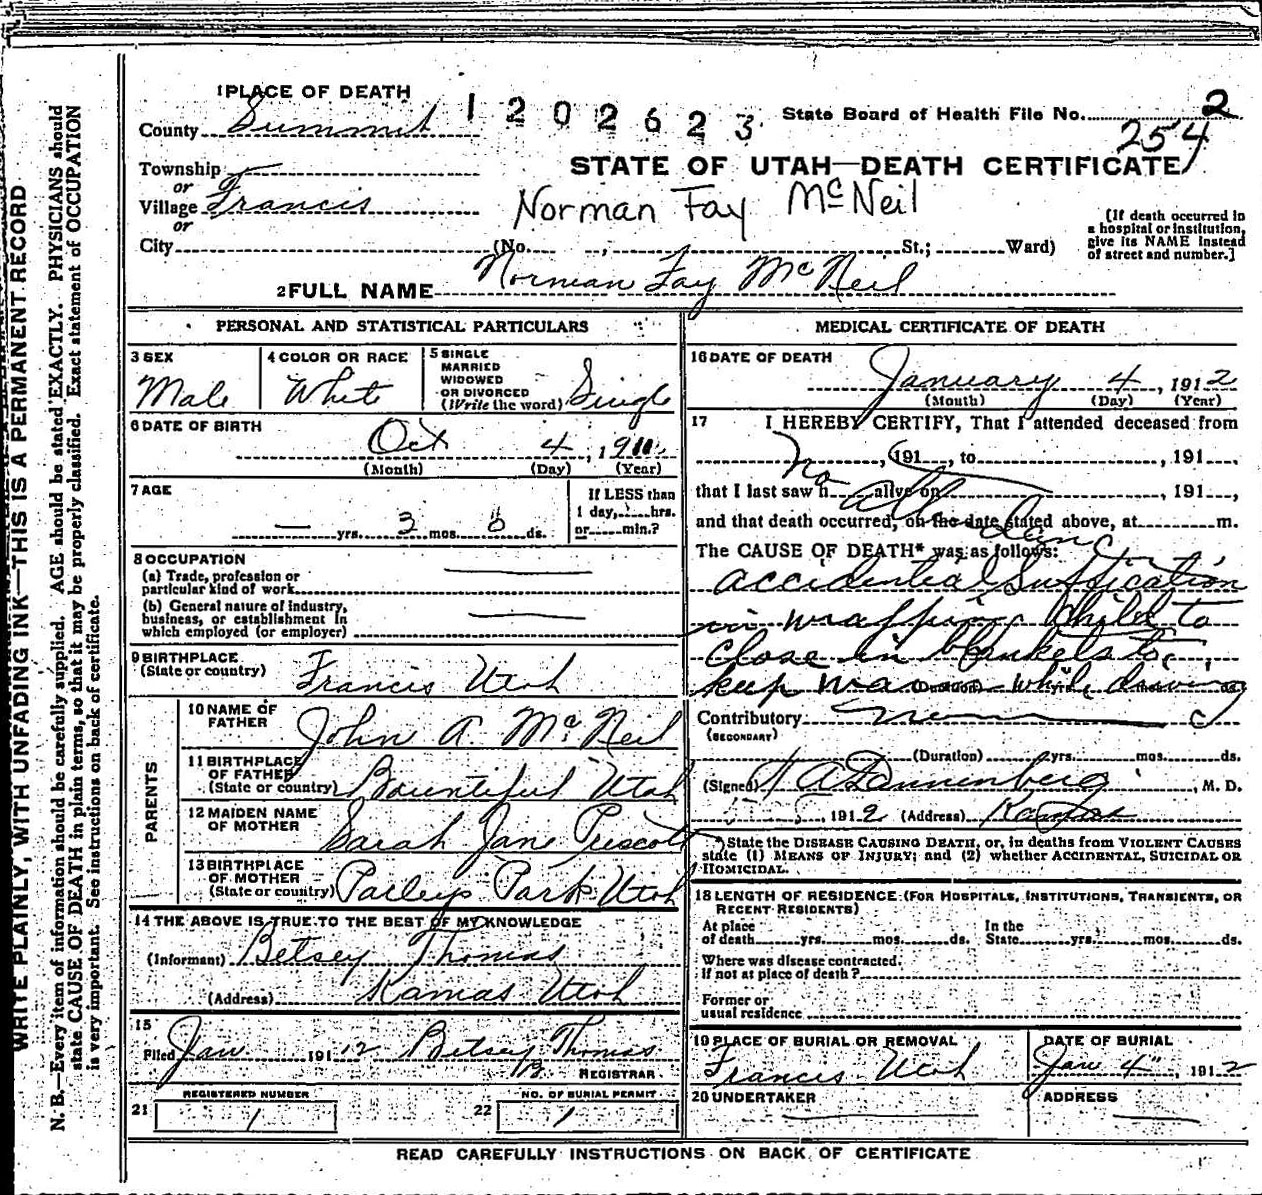 WRITE PLAINLY, WITH UNFADING INK—THIS IS A PERMANENT RECORD
N. B.—Every item of information should be carefully supplied. AGE should be stated EXACTLY. PHYSICIANS should
state CAUSE OF DEATH in plain terms, so that it may be properly classified. Exact statement of OCCUPATION
is very important. See instructions on back of certificate.
1 PLACE OF DEATH
County Summit
1202623
State Board of Health File No. 2
254
Township
or
Village Francis
or
City
STATE OF UTAH—DEATH CERTIFICATE
Norman Fay McNeil
(No. , St.; Ward)
[If death occurred in
a hospital or institution,
give its NAME instead
of street and number.]
2 FULL NAME Norman Fay McNeil
PERSONAL AND STATISTICAL PARTICULARS
3 SEX
Male
4 COLOR OR RACE
White
5 SINGLE
MARRIED
WIDOWED
OR DIVORCED
(Write the word) Single
6 DATE OF BIRTH
Oct 4, 1911
(Month) (Day) (Year)
7 AGE
— yrs. 3 mos. 0 ds.
If LESS than
1 day, hrs.
or min.?
8 OCCUPATION
(a) Trade, profession or
particular kind of work
(b) General nature of industry,
business, or establishment in
which employed (or employer)
9 BIRTHPLACE
(State or country) Francis Utah
PARENTS
10 NAME OF
FATHER John A. McNeil
11 BIRTHPLACE
OF FATHER
(State or country) Bountiful Utah
12 MAIDEN NAME
OF MOTHER Sarah Jane Prescott
13 BIRTHPLACE
OF MOTHER
(State or country) Parleys Park Utah
14 THE ABOVE IS TRUE TO THE BEST OF MY KNOWLEDGE
(Informant) Betsey Thomas
(Address) Kamas Utah
15
Filed Jan 1912 Betsey Thomas
REGISTRAR
21
REGISTERED NUMBER
1
22
NO. OF BURIAL PERMIT
1
MEDICAL CERTIFICATE OF DEATH
16 DATE OF DEATH
January 4, 1912
(Month) (Day) (Year)
17 I HEREBY CERTIFY, That I attended deceased from
No , 191 , to , 191 ,
that I last saw h alive on , 191 ,
Attendance
and that death occurred, on the date stated above, at m.
The CAUSE OF DEATH* was as follows:
accidential Suffication
in wrapping Child to
close in blankets to
keep warm while driving
(Duration) yrs. mos. ds.
Contributory
(SECONDARY)
(Duration) yrs. mos. ds.
(Signed) A Dannenberg, M. D.
, 1912 (Address) Kamas
*State the DISEASE CAUSING DEATH, or, in deaths from VIOLENT CAUSES
state (1) MEANS OF INJURY; and (2) whether ACCIDENTAL, SUICIDAL OR
HOMICIDAL.
18 LENGTH OF RESIDENCE (FOR HOSPITALS, INSTITUTIONS, TRANSIENTS, OR
RECENT RESIDENTS)
At place
of death yrs. mos. ds.
In the
State yrs. mos. ds.
Where was disease contracted.
if not at place of death?
Former or
usual residence
19 PLACE OF BURIAL OR REMOVAL
Francis Utah
DATE OF BURIAL
Jan 4, 1912
20 UNDERTAKER
ADDRESS
READ CAREFULLY INSTRUCTIONS ON BACK OF CERTIFICATE